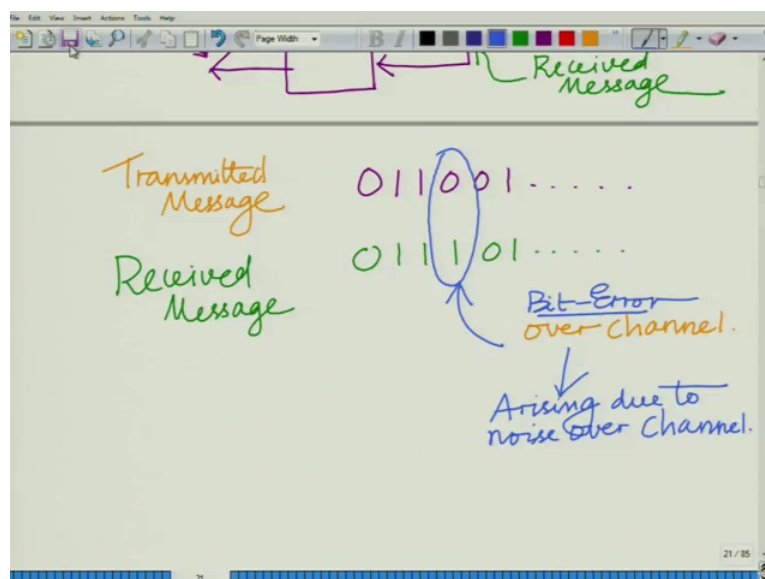 File Edit View Insert Actions Tools Help
Page Width
B I
Received
Message
Transmitted
Message
0 1 1 0 0 1 . . . . .
Received
Message
0 1 1 1 0 1 . . . . .
Bit-Error
over Channel.
Arising due to
noise over Channel.
21 / 85
21